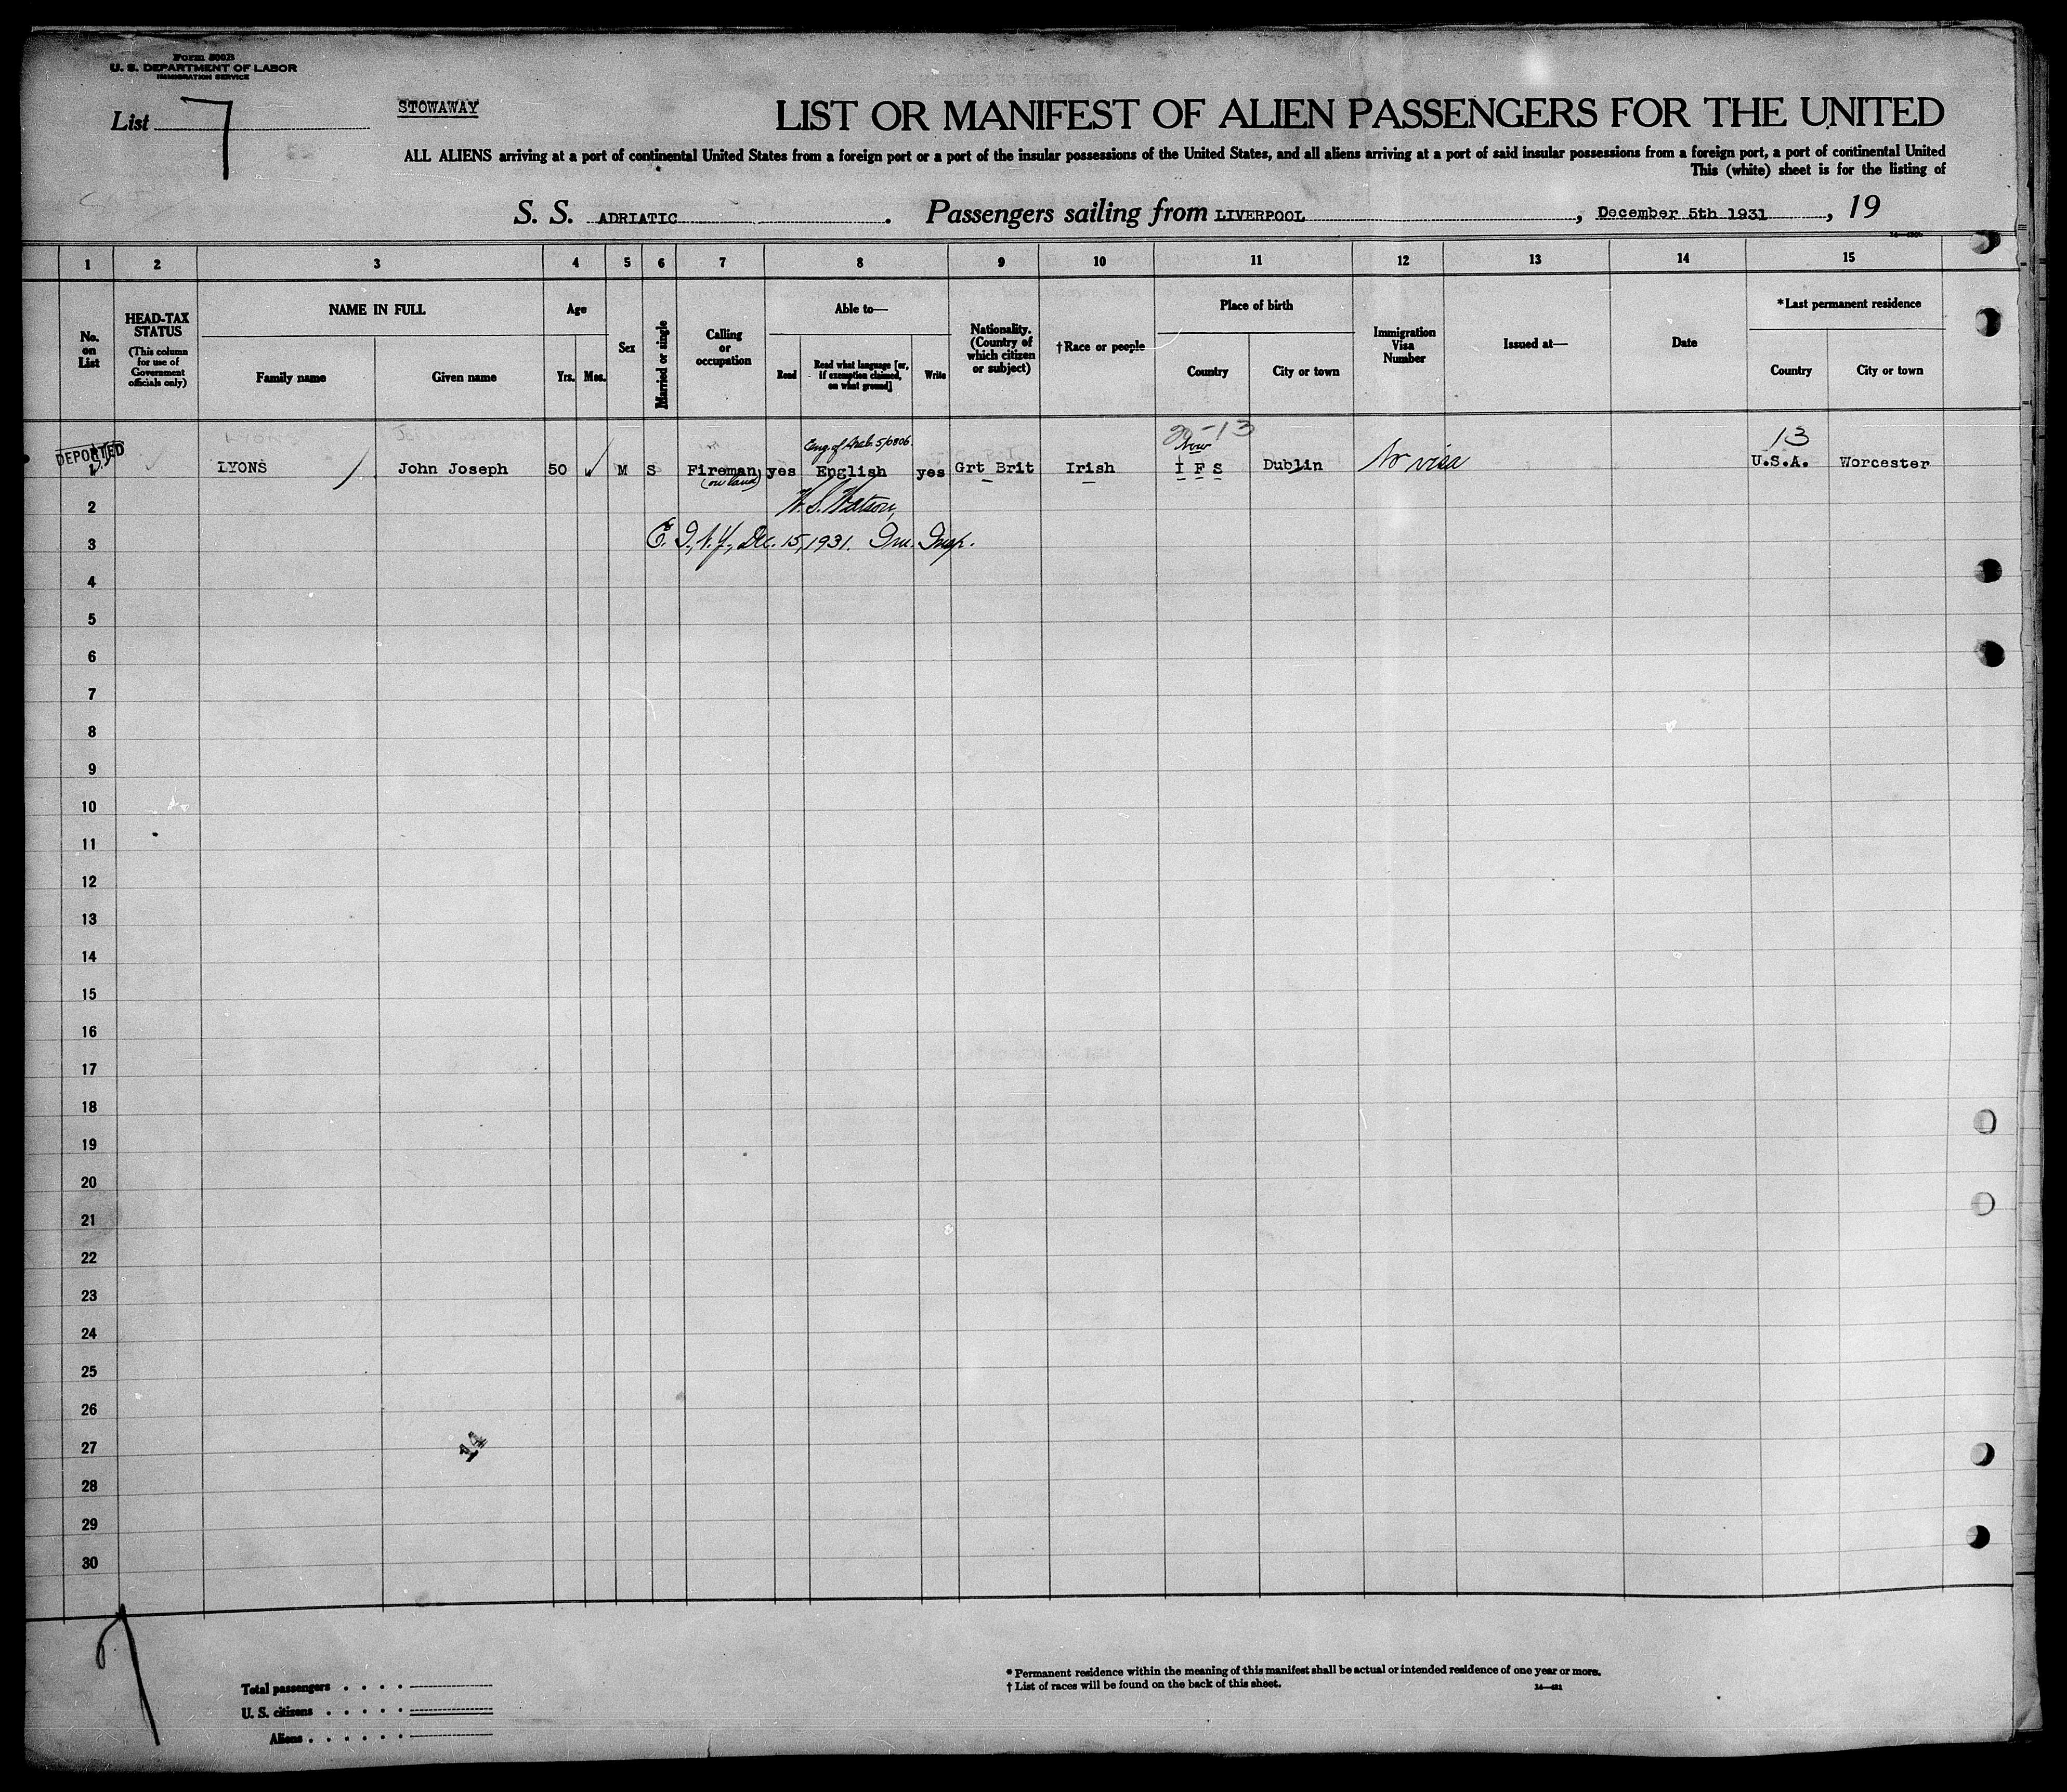 Form 500B
U. S. DEPARTMENT OF LABOR
IMMIGRATION SERVICE
List 7
STOWAWAY
LIST OR MANIFEST OF ALIEN PASSENGERS FOR THE UNITED
ALL ALIENS arriving at a port of continental United States from a foreign port or a port of the insular possessions of the United States, and all aliens arriving at a port of said insular possessions from a foreign port, a port of continental United
This (white) sheet is for the listing of
S. S. ADRIATIC. Passengers sailing from LIVERPOOL, December 5th 1931, 19
1 2 3 4 5 6 7 8 9 10 11 12 13 14 15
No. on List
HEAD-TAX STATUS (This column for use of Government officials only)
NAME IN FULL
Family name Given name
Age
Yrs. Mos.
Sex
Married or single
Calling or occupation
Able to—
Read Read what language [or, if exemption claimed, on what ground] Write
Nationality. (Country of which citizen or subject)
†Race or people
Place of birth
Country City or town
Immigration Visa Number
Issued at—
Date
*Last permanent residence
Country City or town
DEPORTED
13
1 LYONS John Joseph 50 M S Fireman yes English yes Grt Brit Irish I F S Dublin No visa U.S.A. Worcester
(on land)
2 W. S. Watson,
3 E. I., N.Y., Dec. 15, 1931. Im. Insp.
4
5
6
7
8
9
10
11
12
13
14
15
16
17
18
19
20
21
22
23
24
25
26
27
14
28
29
30
Total passengers
U. S. citizens
Aliens
* Permanent residence within the meaning of this manifest shall be actual or intended residence of one year or more.
† List of races will be found on the back of this sheet.